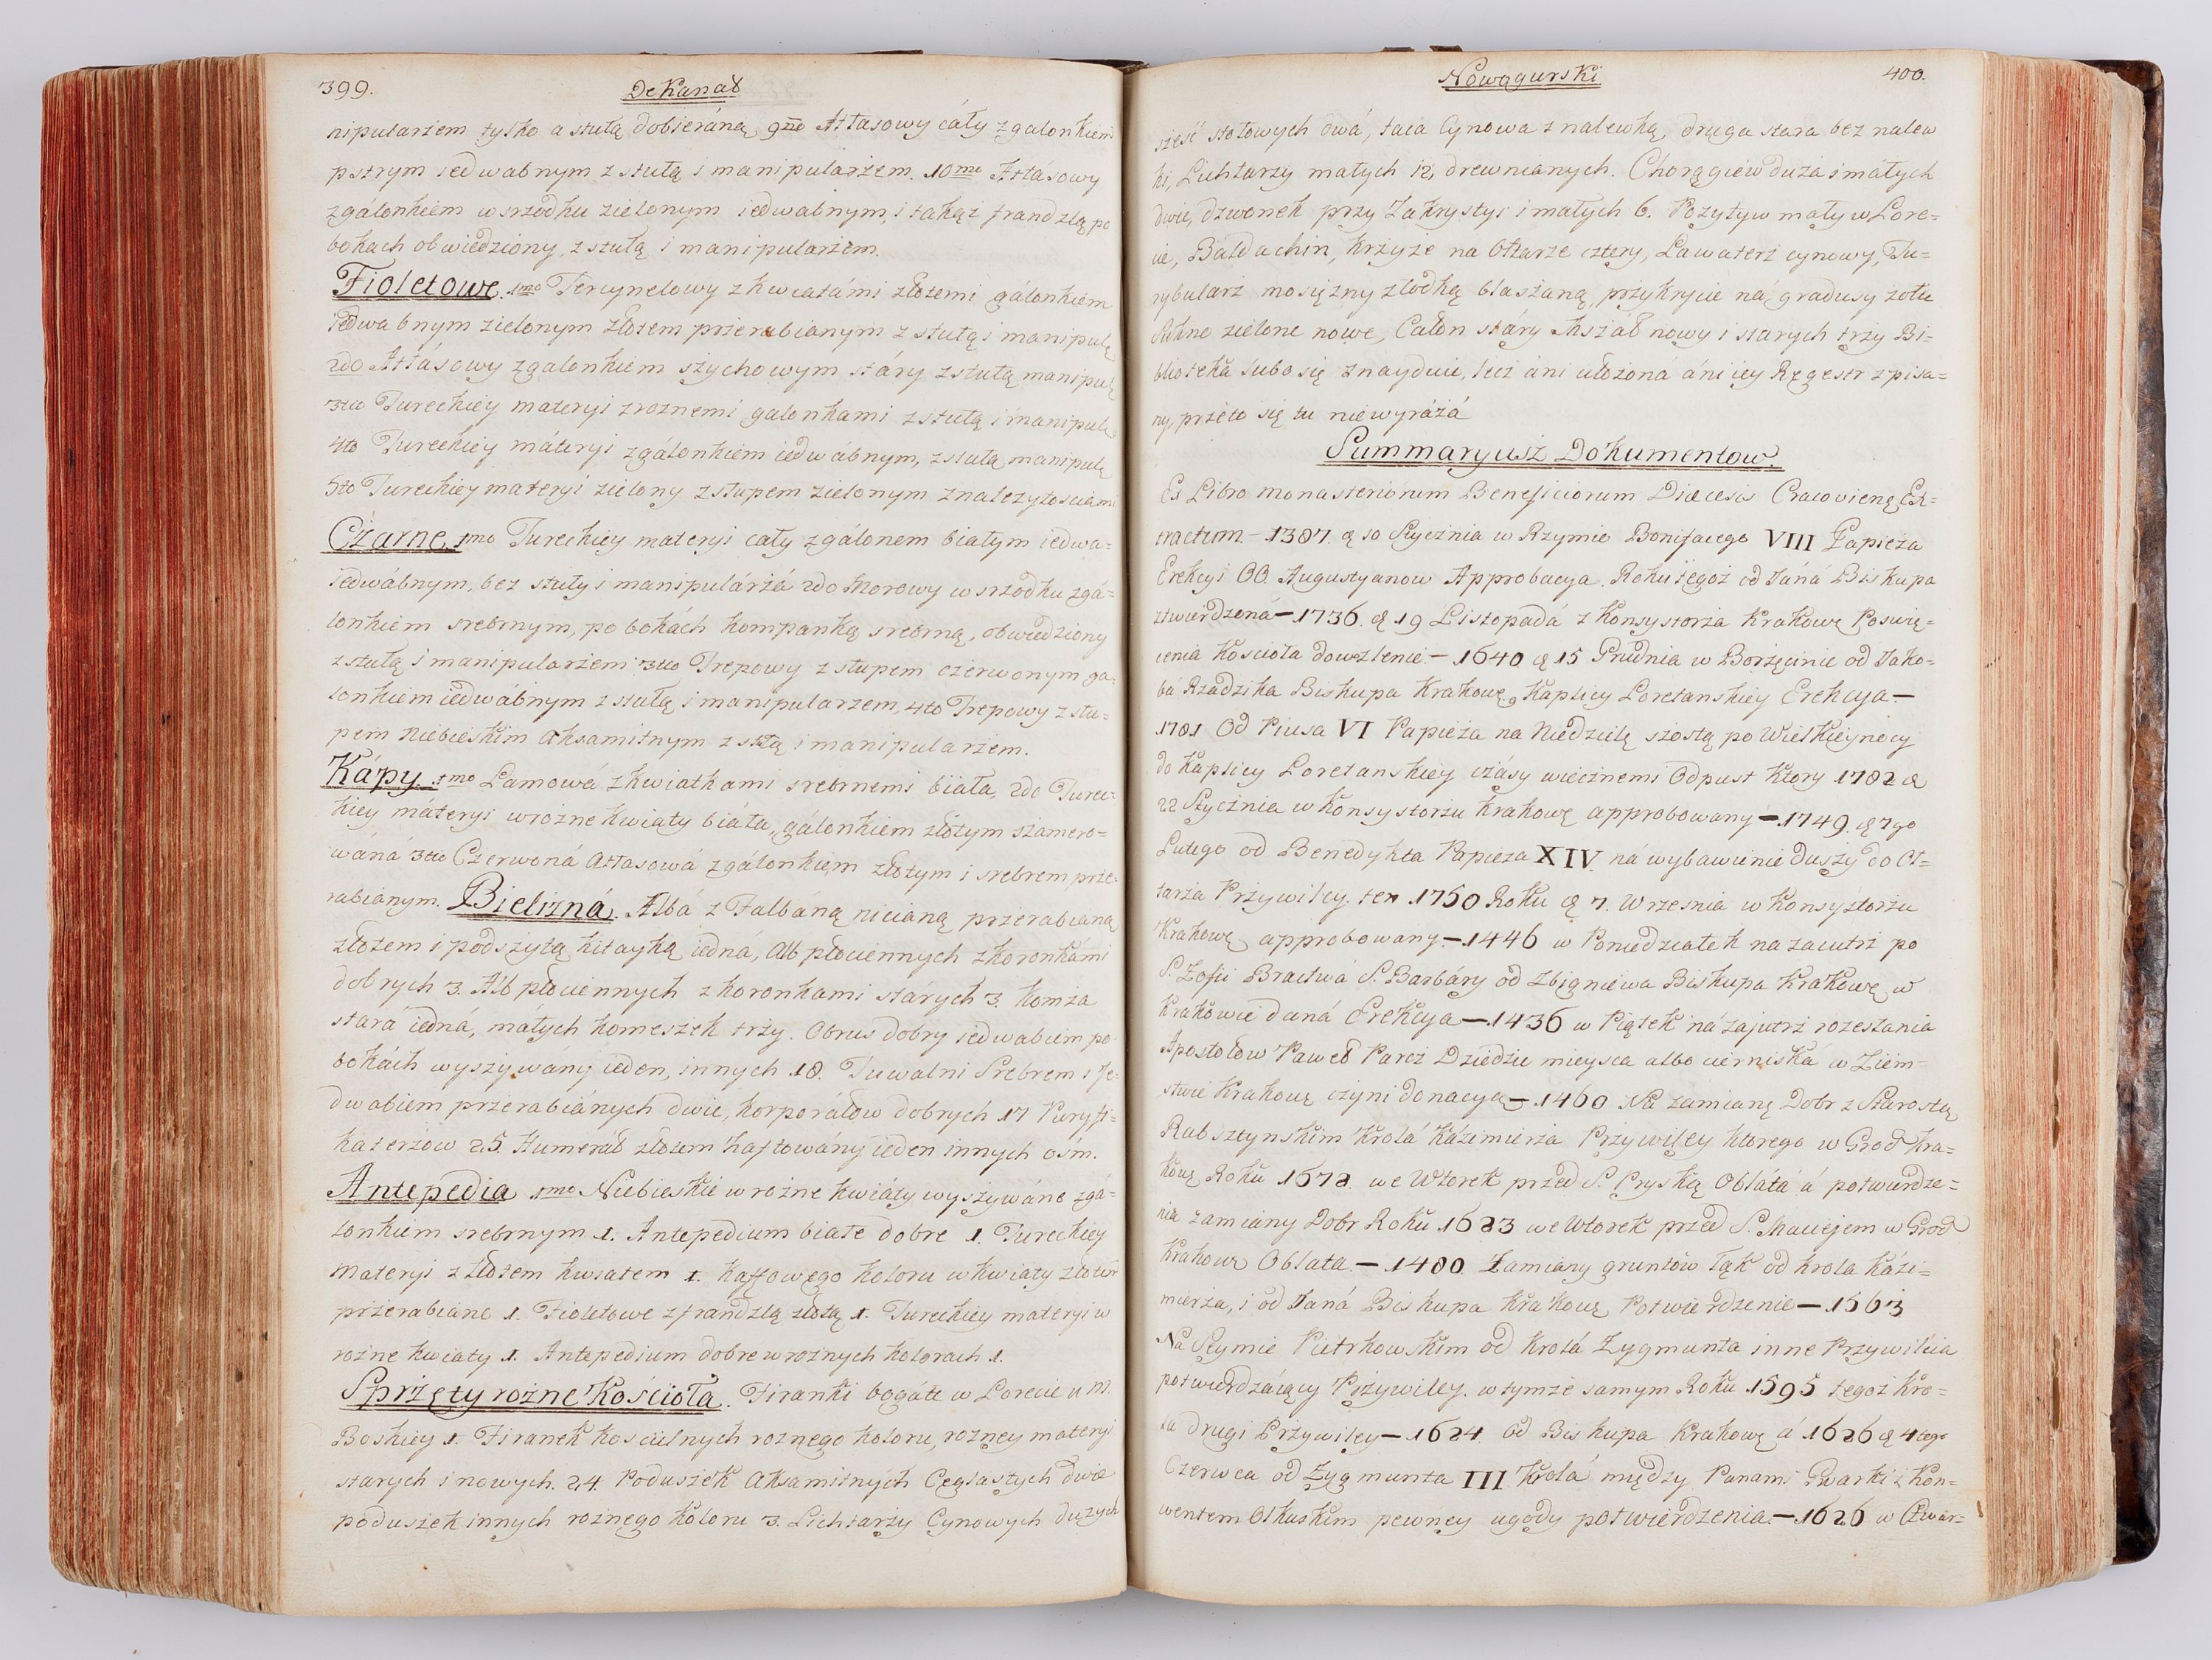 399.
Dekanał
nipularzem tylko a stułą dobieráną, 9no Atłasowy cáły z galonkiem
pstrym iedwabnym z stułą i manipularzem. 10mo Atłásowy
z gálonkiem w srzodku zielonym iedwabnym, i takąż frandzlą po
bokach obwiedziony, z stułą i manipularzem.
Fioletowe. 1mo Tercynelowy z kwiatámi złotemi gálonkiem
iedwabnym zielonym złotem przerabianym z stułą i manipulą
2do Atłásowy z galonkiem szychowym stáry z stułą manipulą
3tio Tureckiéy materyi z roznemi galonkami z stułą i manipulą
4to Tureckiéy máteryi z gálonkiem iedwábnym, z stułą manipulą
5to Tureckiey materyi zielony z stupem zielonym z nalezytosciami
Czarne. 1mo Tureckiey materyi cały z gálonem białym iedwa=
iedwábnym, bez stuły i manipulárzá 2do Morowy w srzodku z gá=
lonkiem srebrnym, po bokách kompanką srebrną, obwiedziony
z stułą i manipularzem 3tio Trepowy z stupem czerwonym ga=
lonkiem iedwábnym z stułą i manipularzem, 4to Trepowy z stu=
pem Niebieskim aksamitnym z stułą i manipularzem.
Kápy. 1mo Lamowá z kwiatkami srebrnemi biiała, 2do Turec=
kiey máteryi w rożne kwiaty biáła, galonkiem złotym szamero=
wáná 3tio Czerwoná Atłasowá z gálonkiem złotym i srebrem prze=
rabianym. Bielizná. Albá z Falbáną nicianą przerabianą
złotem i podszytą kitayką iedná, Alb płóciennych z koronkámi
dobrych 3. Alb płóciennych z koronkami stárych 3. Komża
stará iedná, małych komeszek trzy. Obrus dobry iedwabiem po
bokách wyszywány ieden, innych 18. Tuwalni Srebrem i Je=
dwabiem przerabiánych dwie, korporałow dobrych 17 Puryfi=
katerzow 25. Humerał złotem haftowány ieden innych ośm.
Antepedia 1mo Niebieskie w rożne kwiáty wyszywáne z gá=
lonkiem srebrnym 1. Antepedium białe dobre 1. Tureckiey
Materyi z złotem kwiatem 1. Kaffowego koloru w kwiaty złotem
przerabiane 1. Fioletowe z frandzlą złotą 1. Tureckiey materyi w
rożne kwiaty 1. Antepedium dobre w rożnych kolorach 1.
Sprzęty rożne Kościoła. Firanki bogáte w Lorecie u M.
Boskiey 1. Firanek koscielnych roznego koloru, rozney materyi
starych i nowych. 24. Poduszek Aksamitnych Ceglastych dwie
poduszek innych roznego koloru 3. Lichtarzy Cynowych dużych
Nowogurski
400.
sześć stołowych dwá, taca Cynowa z nalewką, druga stara bez nalew
ki, Lichtarzy małych 12, drewnianych. Chorągiew duża i małych
dwie, dzwonek przy Zakrystyi i małych 6. Pozytyw mały w Lore=
cie, Baldachin, krzyże na Ołtarze cztery, Lawaterz cynowy, Tu=
rybularz mosięzny z łodką blaszaną, przykrycie ná gradusy żołte
Sukno zielone nowe, Całon stáry Mszáł nowy i starych trzy Bi=
blioteka lubo się znayduie, lecz áni ułożona áni iey Regestr zpisa=
ny, przeto się tu niewyrażá
Summaryusz Dokumentow.
Ex Libro monasteriorum Beneficiorum Diæcesis Cracovienę Ex=
tractum. - 1307. ą 10 Stycznia w Rzymie Bonifacego VIII Papieża
Erekcyi OO. Augustyanow Approbacya. Roku tegoż od Jáná Biskupa
ztwierdzoná - 1736. ą 19 Listopadá z Konsystorza Krakowę Poswię=
cenia Kościoła dowzlenie. - 1640 ą 15 Grudnia w Borzęcinie od Jako=
bá Rzadzika Biskupa Krakowę Kaplicy Loretanskiey Erekcya -
1781 Od Piusa VI Papieża na Niedzielę szostą po Wielkieynocy
do Kaplicy Loretanskiey czásy wiecznemi Odpust Ktory 1782 ą
22 Stycznia w Konsystorzu Krakowę approbowany - 1749. ą 7go
Lutego od Benedykta Papieza XIV. ná wybawienie duszy do Oł=
tarza Przywiley ten 1750 Roku ą 7. Wrzesnia w Konsystorzu
Krakowę approbowany. - 1446 w Poniedziałek na zaiutrz po
S. Zofii Bractwá S. Barbáry od Zbigniewa Biskupa Krakowę w
Krakowie daná Erekcya - 1436 w Piątek ná zajutrz rozesłania
Apostołow Paweł Parcz Dziedzic mieysca albo cierniská w Ziem=
stwie Krakowę czyni donacyą - 1460 Na zamianę Dobr z Starostą
Rabsztynskim Krolá Kázimierza Przywiley ktorego w Grod Kra=
kowę Roku 1678. we Wtorek przed S. Pryską Oblátá á potwierdze=
nia zamiany Dobr Roku 1683 we Wtorek przed S. Maciejem w Grod
Krakowę Oblata. - 1480. Zamiany gruntow Łąk od Krola Kázi=
mierza, i od Janá Biskupa Krakowę Potwierdzenie - 1563
Na Seymie Pietrkowskim od Krolá Zygmunta inne Przywileia
potwierdzáiący Przywiley. w tymże samym Roku 1595 tegoż Kro=
la drugi Przywiley - 1624 od Biskupa Krakowę á 1626 ą 4tego
Czerwca od Zygmunta III Krolá między Panami Gwarki i Kon=
wentem Olkuskim pewney ugody potwierdzenia. - 1626 w Czwar=